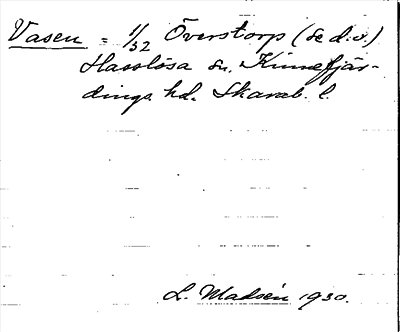 Vasen = 1/32 Överstorp (se d.o.)
Hasslösa sn. Kinnefjär-
dings hd. Skarab. l.
L. Madsén 1930.